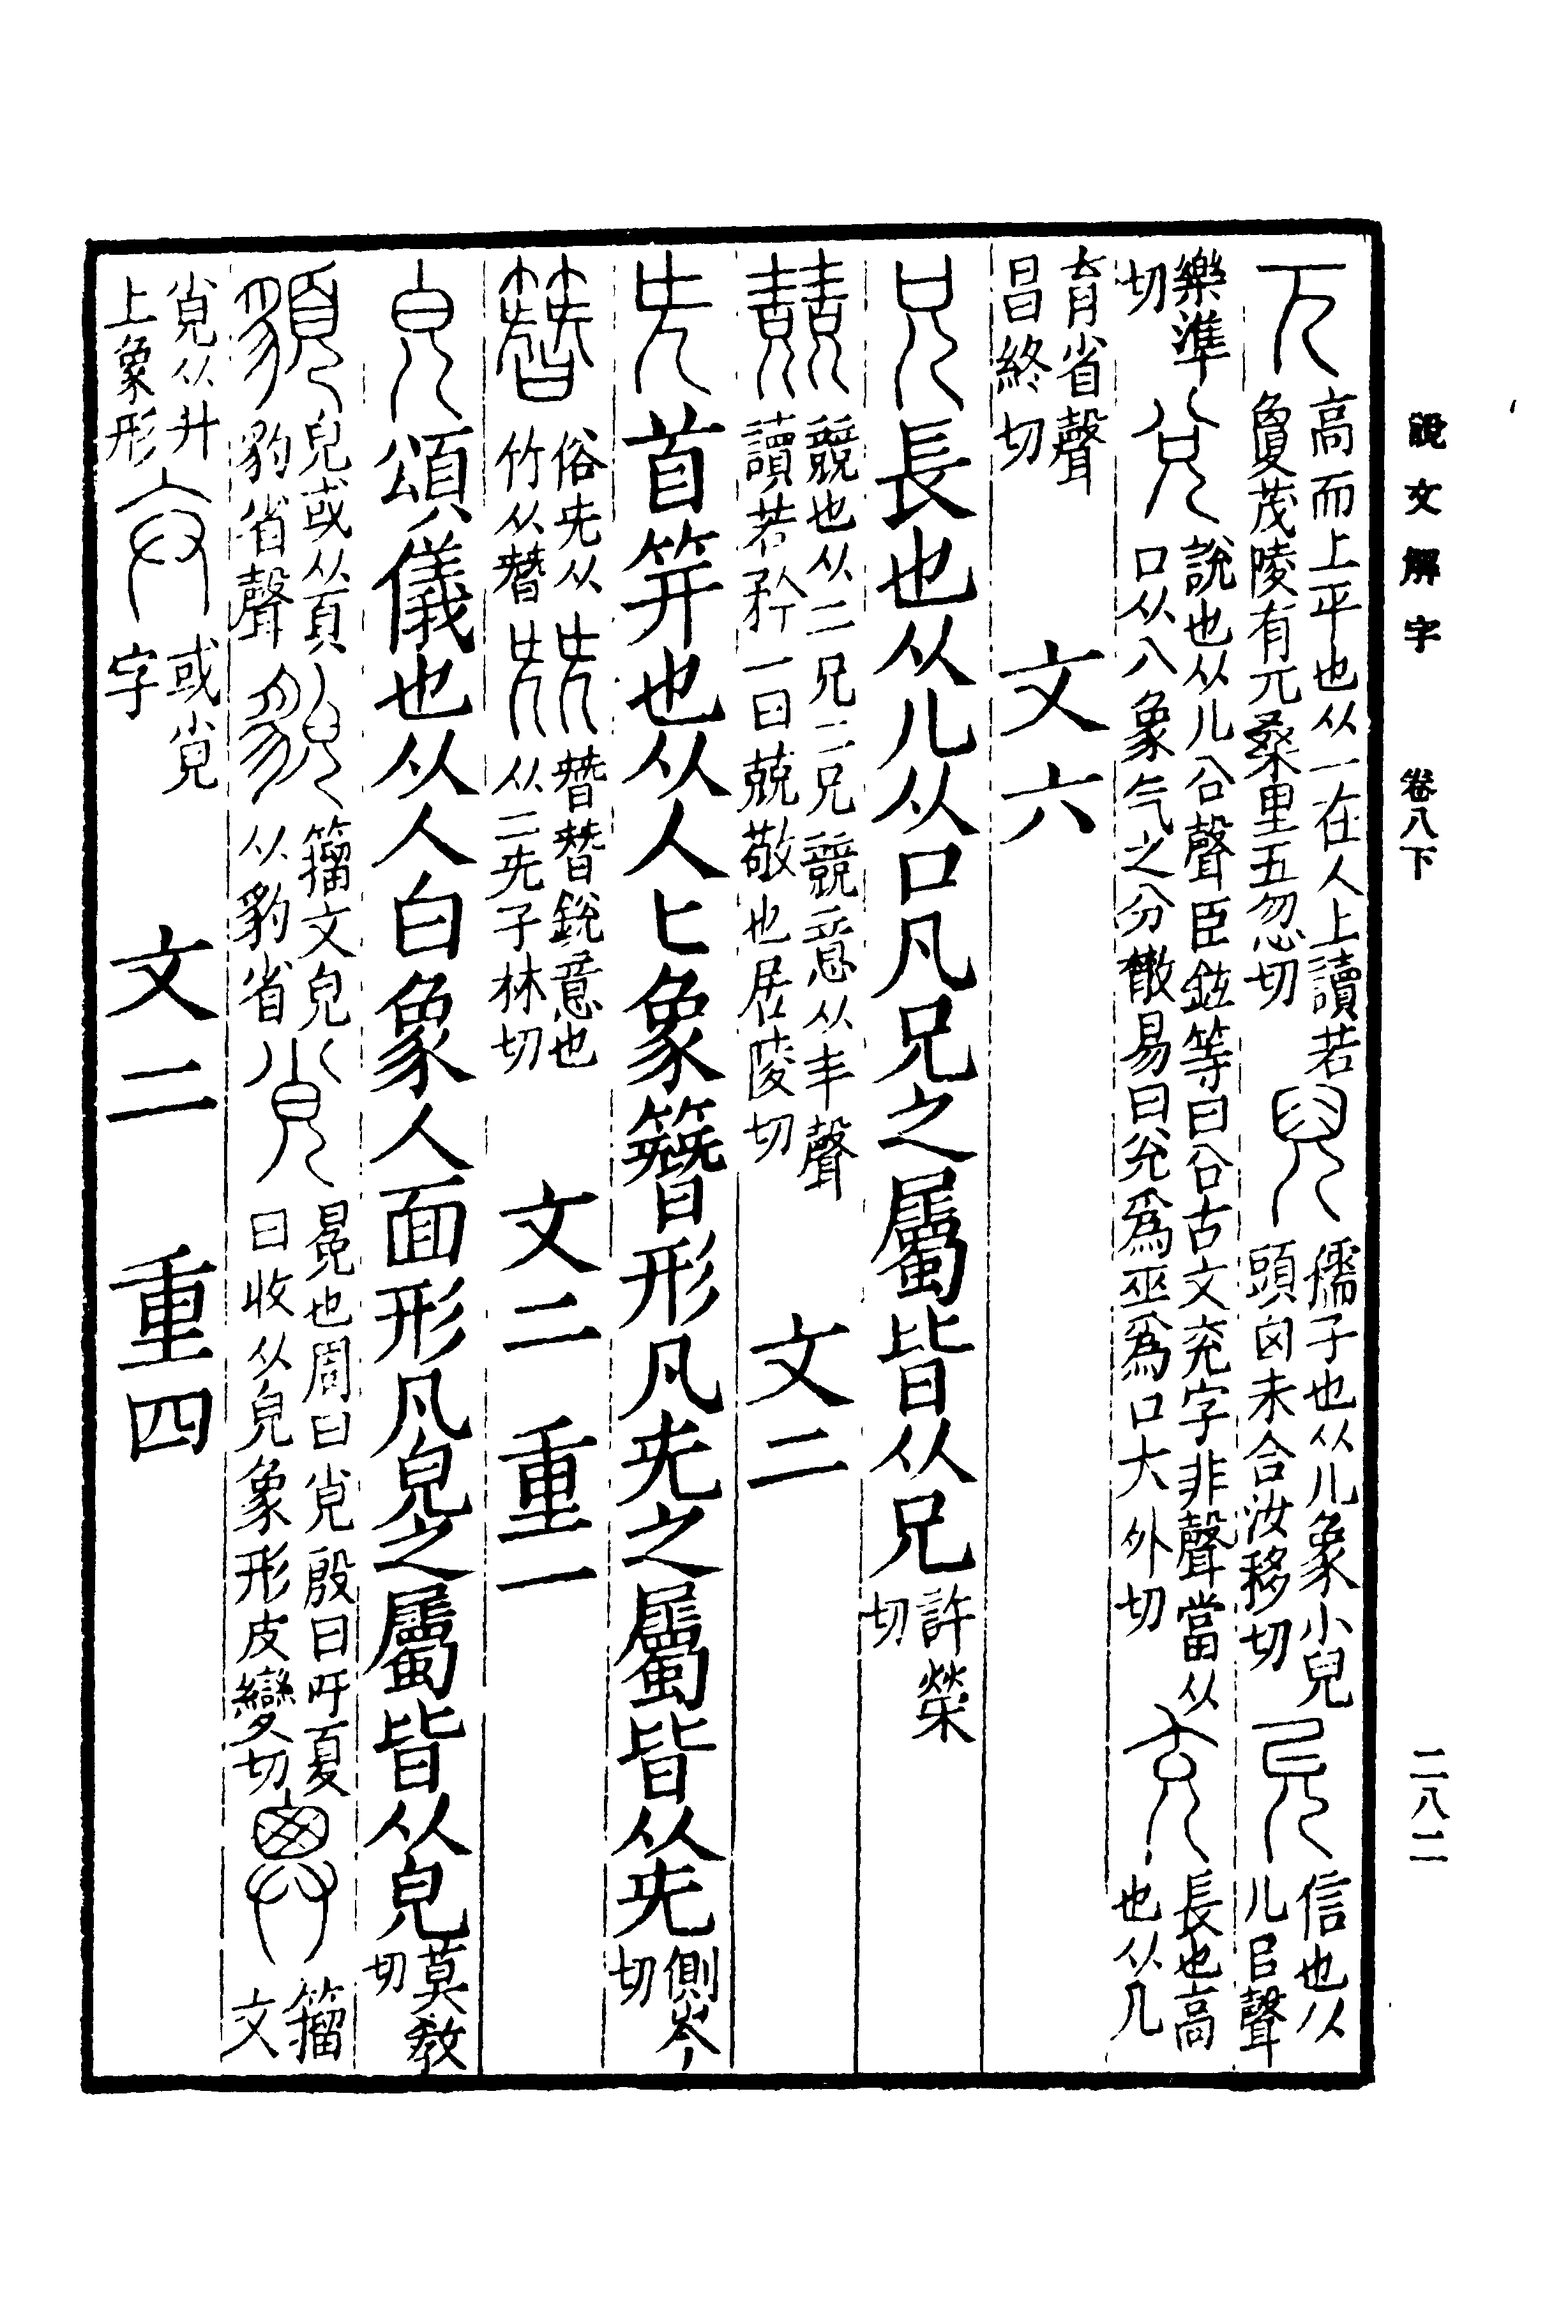 說文解字 卷八下 二八二
兀 高而上平也从一在人上讀若敻茂陵有兀桑里五忽切 兒 孺子也从儿象小兒頭囟未合汝移切 允 信也从儿㠯聲
樂準切 兌 說也从儿㕣聲臣鉉等曰㕣古文兖字非聲當从口从八象气之分㪚易曰兊爲巫爲口大外切 充 長也高也从儿
育省聲昌終切 文六
兄 長也从儿从口凡兄之屬皆从兄 許榮切
競 競也从二兄二兄競意从丯聲讀若矜一曰兢敬也居陵切 文二
兂 首筓也从人匕象簪形凡兂之屬皆从兂 側岑切
簪 俗兂从竹从朁 兓 朁朁銳意也从二兂子林切 文二 重一
皃 頌儀也从人白象人面形凡皃之屬皆从皃 莫敎切
䫉 皃或从頁豹省聲 貌 籒文皃从豹省 覍 冕也周曰覍殷曰吁夏曰收从皃象形皮變切 籒文
覍从廾上象形 弁 或覍字 文二 重四